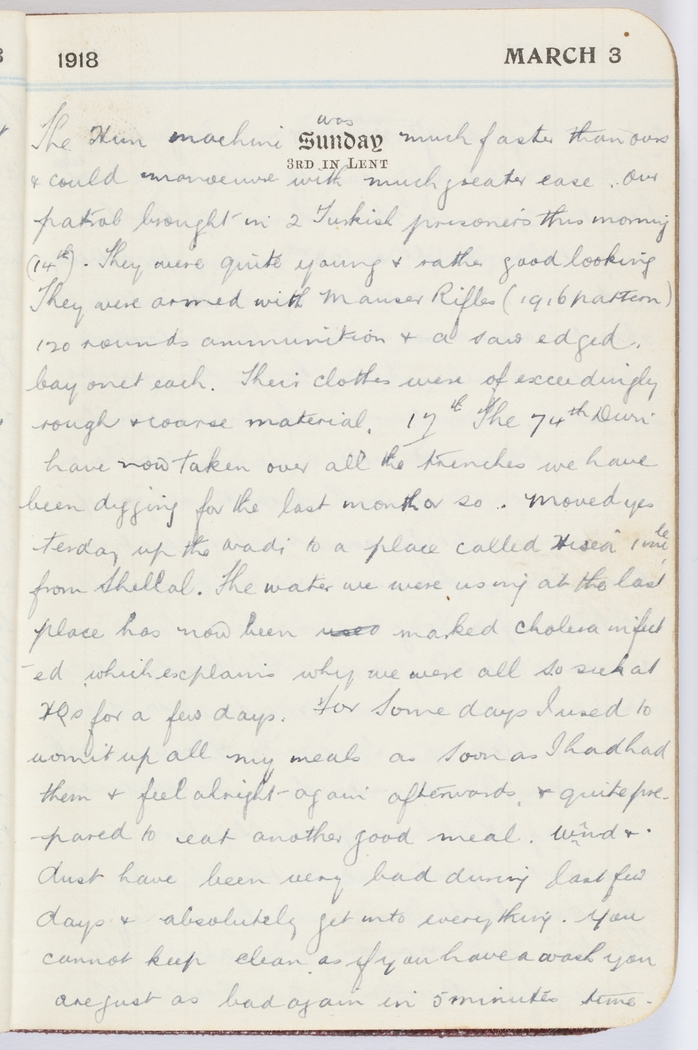 1918 MARCH 3
was
The Hun machine Sunday much faster than ours
3RD IN LENT
& could manoeuvre with much greater ease. Our
patrol brought in 2 Turkish prisoners this morning
(14th). They were quite young & rather good looking
They were armed with Mauser Rifles (1916 pattern)
120 rounds ammunition & a saw edged.
bayonet each. Their clothes were of exceedingly
rough & coarse material. 17th The 74th Divn
have now taken over all the trenches we have
been digging for the last month or so. Moved yes
terday up the wadi to a place called 1 mile
from Shellal. The water we were using at the last
place has now been used marked cholera infect
-ed which explains why we were all so sick at
HQs for a few days. For some days I used to
vomit up all my meals as soon as I had had
them & feel alright again afterwards, & quite pre-
-pared to eat another good meal. Wind &
dust have been very bad during last few
days & absolutely get into everything. You
cannot keep clean as if you have a wash you
are just as bad again in 5 minutes time.